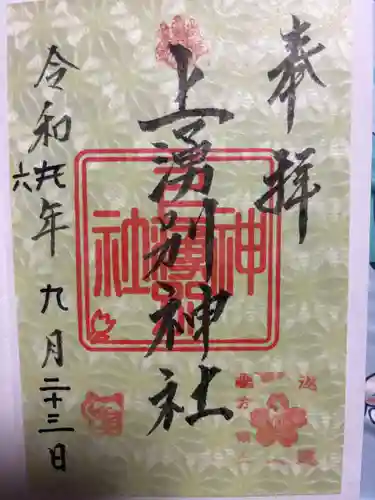 奉拝
上湧別神社
令和六年九月二十三日
神
社